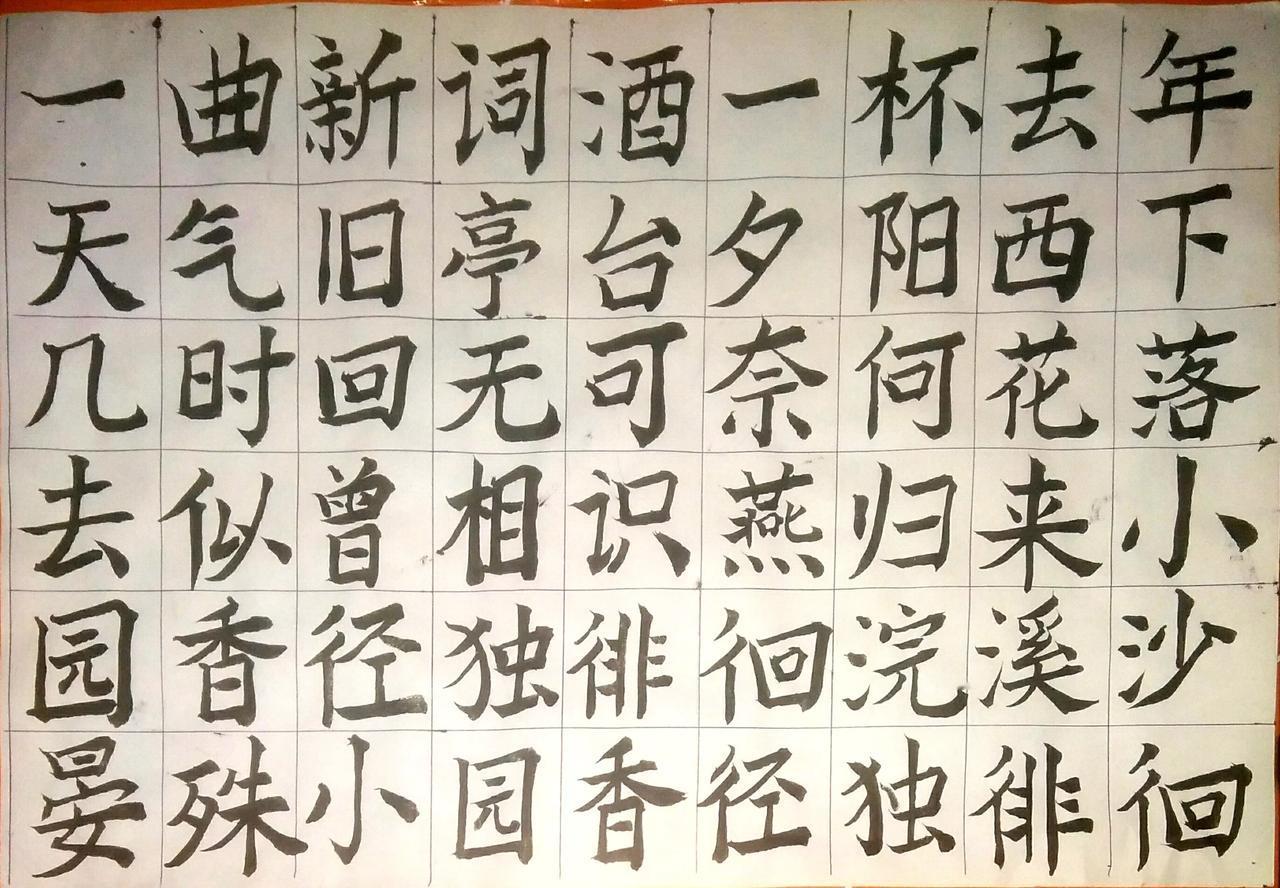 一曲新词酒一杯去年
天气旧亭台夕阳西下
几时回无可奈何花落
去似曾相识燕归来小
园香径独徘徊浣溪沙
晏殊小园香径独徘徊